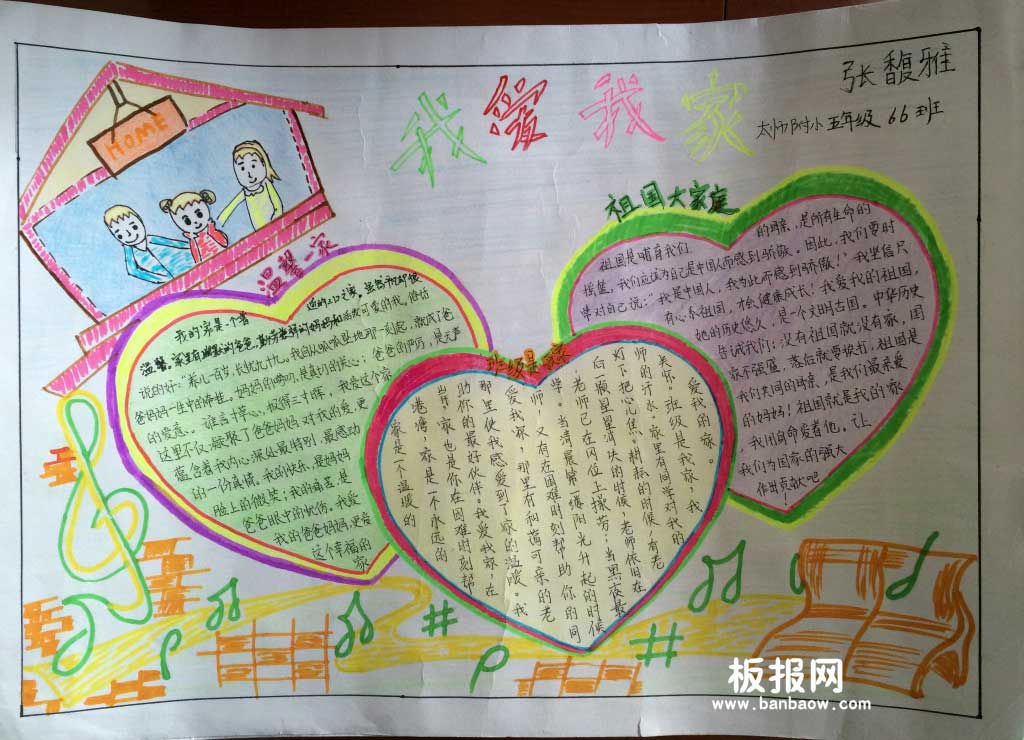 张馥雅
太师附小五年级66班
我爱我家
HOME
温馨一家
我的家是一个普
通的三口之家。虽然
温馨。家里有幽默的爸爸,勤劳善良的妈妈和活泼可爱的我。俗话
说的好:“养儿一百岁,长忧九十九。”我自从呱呱坠地那一刻起,就成了爸
爸妈妈一生中的牵挂。妈妈的唠叨,是最初的关心;爸爸的严厉,是无声
的爱意。谁言寸草心,报得三寸晖,我爱这个家
这里不仅凝聚了爸爸妈妈对我的爱,更
蕴含着我内心深处最特别、最感动
的一份真情。我的快乐,是妈妈
脸上的微笑;我的痛苦,是
爸爸眼中的忧伤。我爱
我的爸爸妈妈,更爱
这个幸福的
家
班级是我家
家是一个温暖的
港湾,家是一个永远的
岸,家也是你在困难时刻帮
助你的最好伙伴。我爱我家,在
那里使我感爱到家的温暖。我
爱我家,那里有和蔼可亲的老
师,又有在困难时刻帮助你的同
学。当清晨第一缕阳光升起的时候
老师已在岗位上操劳;当黑夜最
后一颗星星消失的时候,老师依旧在
灯下把心儿焦;耕耘的时候,有老
师的汗水,家里有同学对我的
关心。班级是我家,我
爱我的家。
祖国大家庭
祖国是哺育我们
的母亲,是所有生命的
摇篮,我们应该为自己是中国人而感到骄傲。因此,我们要时
常对自己说:“我是中国人,我为此而感到骄傲!”我坚信只
有心系祖国,才会健康成长!我爱我的祖国,
她的历史悠久,是一个文明古国。中华历史
告诫我们:没有祖国就没有家,国
家不强盛,落后就要挨打。祖国是
我们共同的母亲,是我们最亲爱
的妈妈!祖国就是我的家
,我用自命爱着他。让
我们为国家的强大
作出贡献吧!
板报网
www.banbaow.com